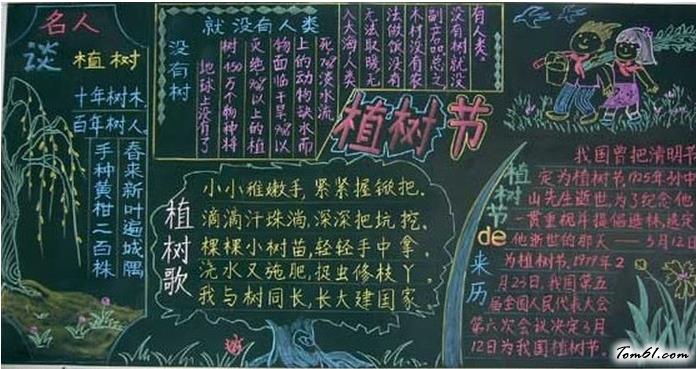 名人
谈植树
十年树木,
百年树人。
手种黄柑二百株
春来新叶遍城隅
没有树
就没有人类
地球上没有了
树450万个物种将
灭绝90%以上的植
物面临干旱,90%以
上的动物缺水而
淡水流
人大海人类
无法取暖无
法做饭没有
木材没有农
副产品总之,
没有树就没
有人类。
植树节
植树歌
小小稚嫩手,紧紧握锨把,
滴滴汗珠淌,深深把坑挖,
棵棵小树苗,轻轻手中拿,
浇水又施肥,捉虫修枝丫。
我与树同长,长大建国家
植树节de来历
我国曾把清明节
定为植树节,1925年,孙中
山先生逝世,为了纪念他
一贯重视并提倡造林,选定
他逝世的那天——3月12日
为植树节,1979年2
月23日,我国第五
届全国人民代表大会
第六次会议决定3月
12日为我国植树节。
Tom61.com